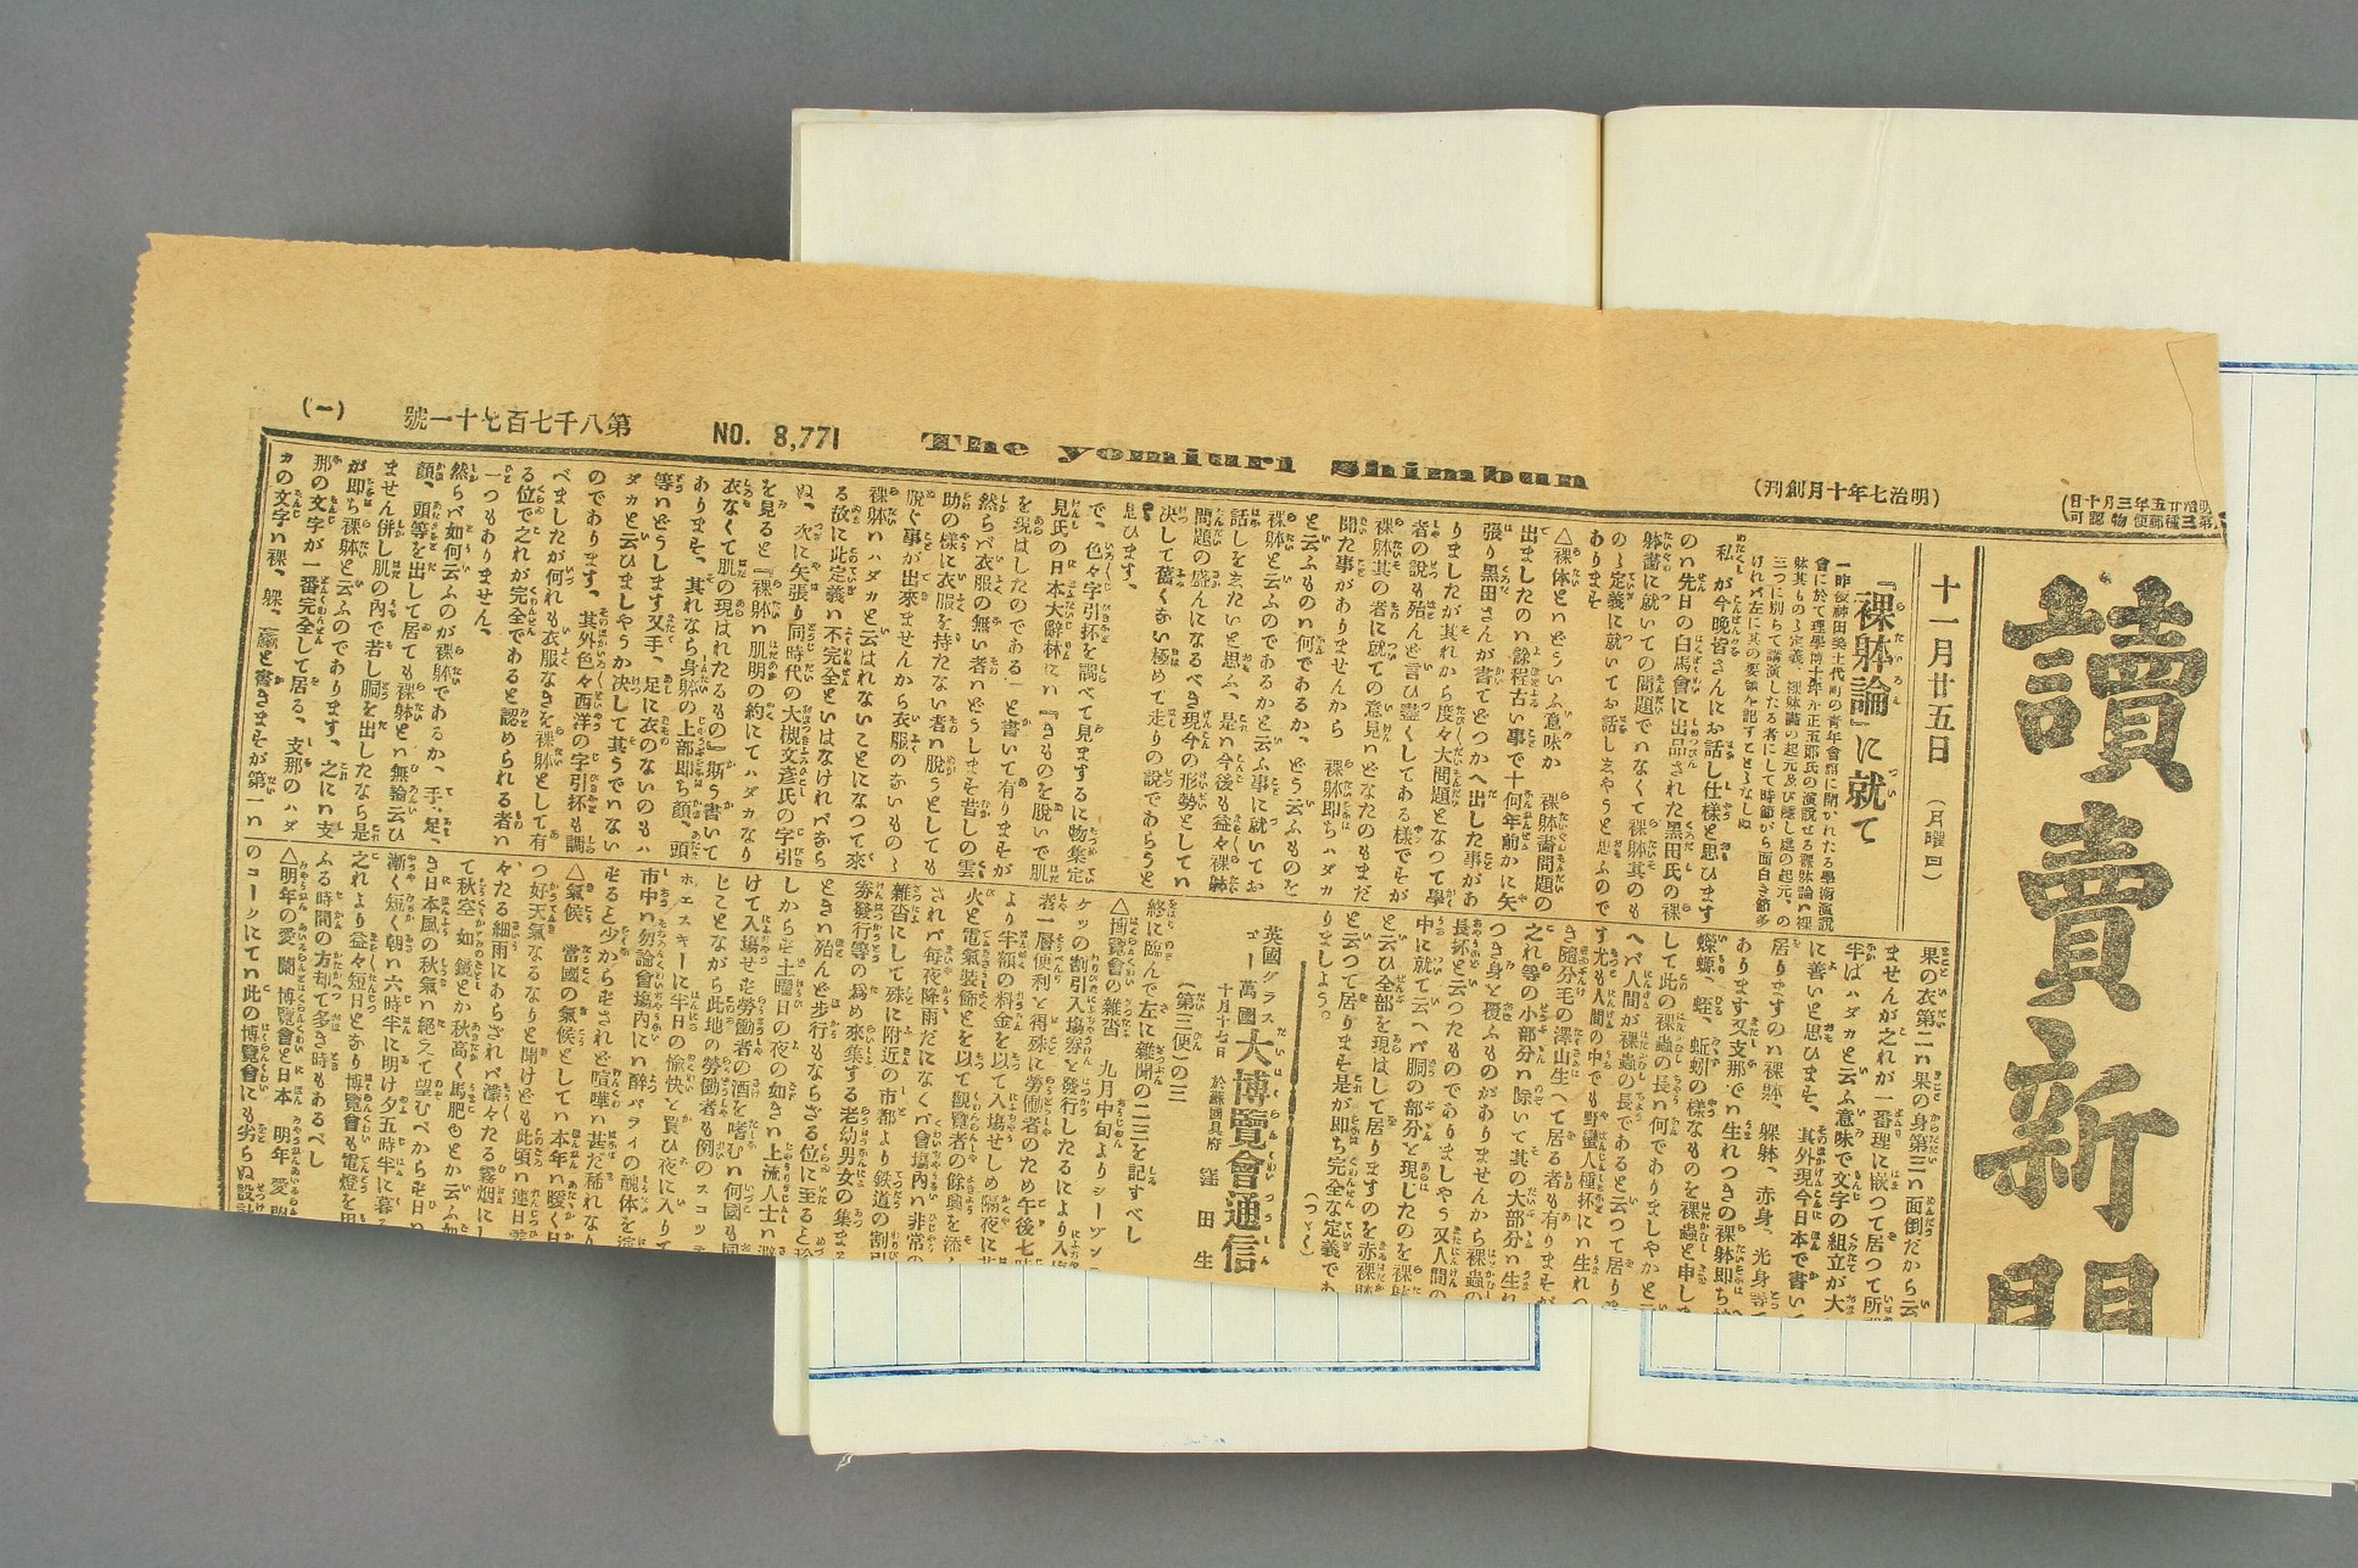 讀賣新聞
明治廿五年三月十日
第三種郵便物認可
(明治七年十月創刊)
The yomiuri Shimbun
NO. 8,771
第八千七百七十一號
(一)
十一月廿五日
(月曜日)
『裸躰論』に就て
一昨夜神田美土代町の青年會舘に開かれたる學術演説
會に於て理學博士坪井正五郎氏の演説せる裸躰論ハ裸
躰其ものゝ定義、裸躰畵の起元及び隱し處の起元、の
三つに別ちて講演したる者にして時節がら面白き節多
けれバ左に其の要領を記すところなしぬ
私が今晩皆さんにお話し仕樣と思ひます
のハ先日の白馬會に出品された黒田氏の裸
躰畵に就いての問題でハなくて裸躰其のも
のゝ定義に就いてお話しをしやうと思ふので
あります
△裸体とハどういふ意味か　裸躰畵問題の
出ましたのハ餘程古い事で十何年前かに矢
張り黒田さんが書てどつかへ出した事があ
りましたが其れから度々大問題となつて學
者の説も殆んど言ひ盡くしてある樣ですが
裸躰其の者に就ての意見ハどなたのもまだ
聞た事がありませんから　裸躰即ちハダカ
と云ふものハ何であるか、どう云ふものを
裸躰と云ふのであるかと云ふ事に就いてお
話しをしたいと思ふ、是ハ今後も益々裸躰
問題の盛んになるべき現今の形勢としてハ
決して舊くない極めて走りの説であらうと
思ひます、
で、色々字引抔を調べて見まするに物集定
見氏の日本大辭林にハ『きものを脱いで肌
を現はしたのである』と書いて有りますが
然らバ衣服の無い者ハどうします昔しの雲
助の樣に衣服を持たない者ハ脱うとしても
脱ぐ事が出來ませんから衣服のないものゝ
裸躰ハハダカと云はれないことになつて來
る故に此定義ハ不完全といはなけれバなら
ぬ、次に矢張り同時代の大槻文彦氏の字引
を見ると『裸躰ハ肌明の約にてハダカなり
衣なくて肌の現はれたるもの』斯う書いて
あります、其れなら身躰の上部即ち顔、頭
等ハどうします又手、足に衣のないのもハ
ダカと云ひましやうか決して其うでハない
のであります、其外色々西洋の字引抔も調
べましたが何れも衣服なきを裸躰として有
る位で之れが完全であると認められる者ハ
一つもありません、
然らバ如何云ふのが裸躰であるか、手、足、
顔、頭等を出して居ても裸躰とハ無論云ひ
ません併し肌の内で若し胴を出したなら是
が即ち裸躰と云ふのであります、之にハ支
那の文字が一番完全して居る、支那のハダ
カの文字ハ裸、躶、臝と書きますが第一ハ
果の衣第二ハ果の身第三ハ面倒だから云
ませんが之れが一番理に嵌つて居つて所
半ばハダカと云ふ意味で文字の組立が大
に善いと思ひます、其外現今日本で書い
居りますのハ裸躰、躶躰、赤身、光身等で
あります又支那でハ生れつきの裸躰即ち
蠑螈、蛭、蚯蚓の樣なものを裸蟲と申し
して此の裸蟲の長ハ何でありましやかと
へバ人間が裸蟲の長であると云つて居り
す尤も人間の中でも野蠻人種抔にハ生れ
き隨分毛の澤山生へて居る者も有りますが
之れ等の小部分ハ除いて其の大部分ハ生れ
つき身を覆ふものがありませんから裸蟲の
長抔と云つたものでありましやう又人間の
中に就て云へバ胴の部分を現じたのを裸
と云ひ全部を現はして居りますのを赤裸
と云つて居ります是が即ち完全な定義であ
りましよう。
(つゞく)
英國グラスゴー萬國大博覽會通信
十月十七日　於蘇國首府　窪田生
(第三便)の三
終に臨んで左に雜聞の二三を記すべし
△博覽會の雜沓　九月中旬よりシーヅン
ケツの割引入塲券を發行したるにより入
者一層便利を得殊に勞働者のため午後七
より半額の料金を以て入塲せしめ隔夜に
火と電氣裝飾とを以て觀覽者の餘興を添
されバ毎夜降雨だになくバ會塲内ハ非常の
雜沓にして殊に附近の市都より鉄道の割引
券發行等の爲め來集する老幼男女の集ま
ときハ殆んど歩行もならざる位に至ると
しからず土曜日の夜の如きハ上流人士ハ
けて入塲せず勞働者の酒を嗜むハ何國も同
じことながら此地の勞働者も例のスコツ
ホエスキーに半日の愉快を買ひ夜に入りて
市中ハ勿論會塲内にハ醉パライの醜体を
ずると少からずされど喧嘩ハ甚だ稀れなり
△氣候　當國の氣候としてハ本年ハ暖く
つ好天氣なるなりと聞けども此頃ハ連日雲
々たる細雨にあらざれバ濛々たる霧烟に
て秋空如鏡とか秋高く馬肥ゆとか云ふ如
き日本風の秋氣ハ絶えて望むべからず日ハ
漸く短く朝ハ六時半に明け夕五時半に暮
之れより益々短日となり博覽會も電燈を用
ふる時間の方却て多き時もあるべし
△明年の愛蘭博覽會と日本　明年愛
のコークにてハ此の博覽會にも劣らぬ設